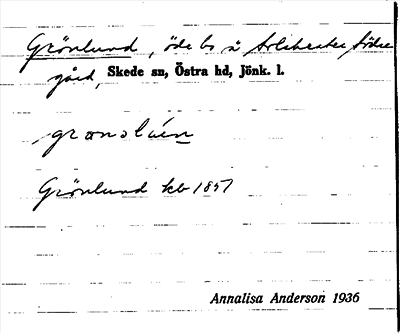 Grönlund, öde ls å Arlebecke södre
gård, Skede sn, Östra hd, Jönk. l.
Grönlund kb 1857
Annalisa Anderson 1936